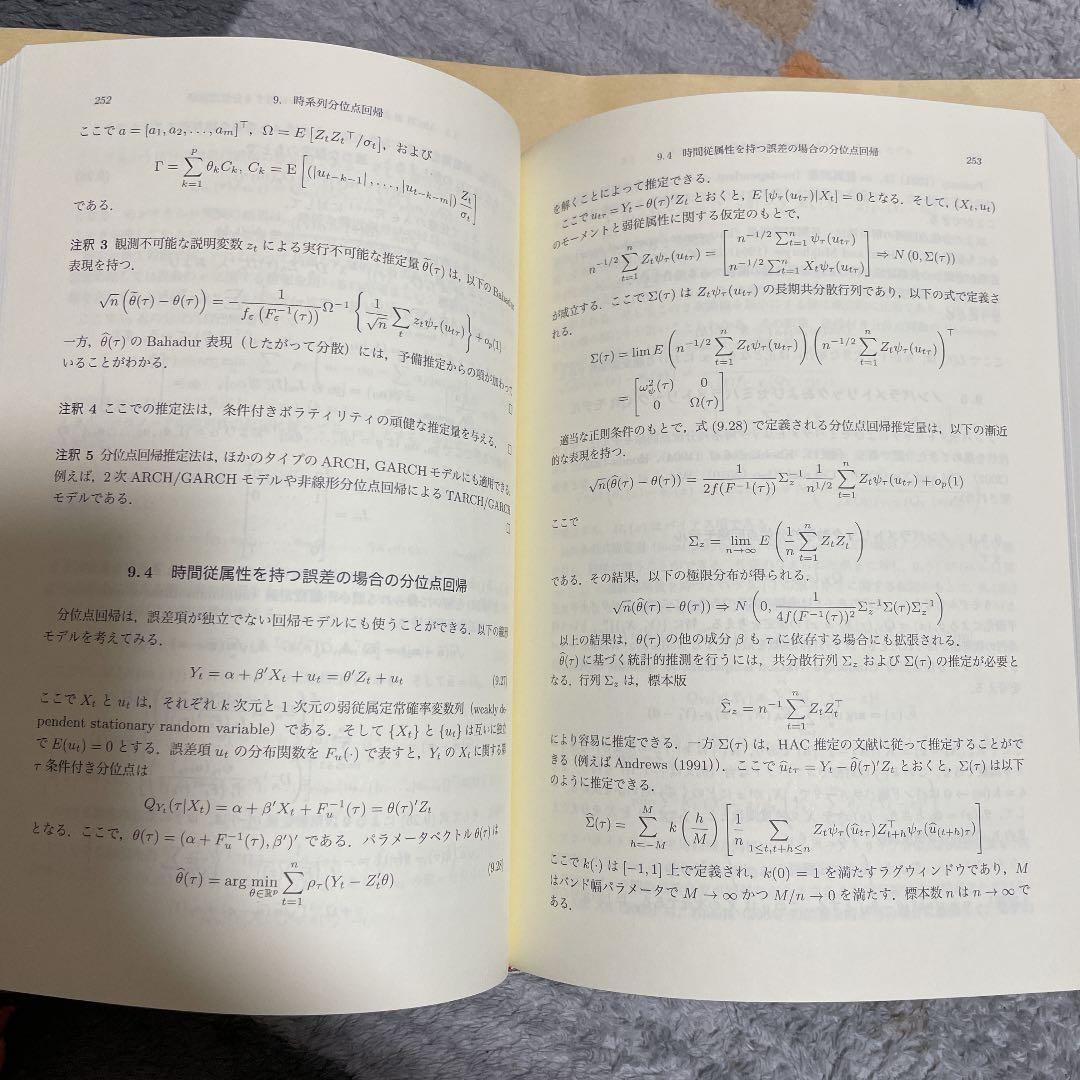 252
9. 時系列分位点回帰
ここで a = [a₁, a₂, . . . , aₘ]⊤, Ω = E [ZₜZₜ⊤/σₜ], および
Γ = ∑_{k=1}^{p} θₖCₖ, Cₖ = E [(|u_{t−k−1}|, . . . , |u_{t−k−m}|) Zₜ/σₜ]
である.
注釈 3 観測不可能な説明変数 zₜ による実行不可能な推定量 θ̃(τ) は, 以下の Bahadur
表現を持つ.
√n (θ̃(τ) − θ(τ)) = − 1/(f_ε (F_ε^{−1}(τ))) Ω^{−1} {1/√n ∑_t zₜψ_τ(u_{tτ})} + oₚ(1)
一方, θ̂(τ) の Bahadur 表現（したがって分散）には, 予備推定からの項が加わって
いることがわかる. □
注釈 4 ここでの推定法は, 条件付きボラティリティの頑健な推定量を与える. □
注釈 5 分位点回帰推定法は, ほかのタイプの ARCH, GARCH モデルにも適用できる.
例えば, 2 次 ARCH/GARCH モデルや非線形分位点回帰による TARCH/GARCH
モデルである. □
9.4 時間従属性を持つ誤差の場合の分位点回帰
分位点回帰は, 誤差項が独立でない回帰モデルにも使うことができる. 以下の線形
モデルを考えてみる.
Yₜ = α + β′Xₜ + uₜ = θ′Zₜ + uₜ (9.27)
ここで Xₜ と uₜ は, それぞれ k 次元と 1 次元の弱従属定常確率変数列 (weakly de-
pendent stationary random variable) である. そして {Xₜ} と {uₜ} は互いに独立
で E(uₜ) = 0 とする. 誤差項 uₜ の分布関数を Fᵤ(·) で表すと, Yₜ の Xₜ に関する第
τ 条件付き分位点は
Q_{Yₜ}(τ|Xₜ) = α + β′Xₜ + Fᵤ^{−1}(τ) = θ(τ)′Zₜ
となる. ここで, θ(τ) = (α + Fᵤ^{−1}(τ), β′)′ である. パラメータベクトル θ(τ) は
θ̂(τ) = arg min_{θ∈ℝᵖ} ∑_{t=1}^{n} ρ_τ(Yₜ − Z′ₜθ) (9.28)
9.4 時間従属性を持つ誤差の場合の分位点回帰
253
を解くことによって推定できる.
ここで u_{tτ} = Yₜ − θ(τ)′Zₜ とおくと, E [ψ_τ(u_{tτ})|Xₜ] = 0 となる. そして, (Xₜ, uₜ)
のモーメントと弱従属性に関する仮定のもとで,
n^{−1/2} ∑_{t=1}^{n} Zₜψ_τ(u_{tτ}) = [n^{−1/2} ∑_{t=1}^{n} ψ_τ(u_{tτ}) ; n^{−1/2} ∑_{t=1}^{n} Xₜψ_τ(u_{tτ})] ⇒ N (0, Σ(τ))
が成立する. ここで Σ(τ) は Zₜψ_τ(u_{tτ}) の長期共分散行列であり, 以下の式で定義さ
れる.
Σ(τ) = lim E (n^{−1/2} ∑_{t=1}^{n} Zₜψ_τ(u_{tτ})) (n^{−1/2} ∑_{t=1}^{n} Zₜψ_τ(u_{tτ}))⊤
= [ω²_ψ(τ) 0 ; 0 Ω(τ)]
適当な正則条件のもとで, 式 (9.28) で定義される分位点回帰推定量は, 以下の漸近
的な表現を持つ.
√n(θ̂(τ) − θ(τ)) = 1/(2f(F^{−1}(τ))) Σ_z^{−1} 1/n^{1/2} ∑_{t=1}^{n} Zₜψ_τ(u_{tτ}) + oₚ(1)
ここで
Σ_z = lim_{n→∞} E (1/n ∑_{t=1}^{n} ZₜZₜ⊤)
である. その結果, 以下の極限分布が得られる.
√n(θ̂(τ) − θ(τ)) ⇒ N (0, 1/(4f(F^{−1}(τ))²) Σ_z^{−1}Σ(τ)Σ_z^{−1})
以上の結果は, θ(τ) の他の成分 β も τ に依存する場合にも拡張される.
θ̂(τ) に基づく統計的推測を行うには, 共分散行列 Σ_z および Σ(τ) の推定が必要と
なる. 行列 Σ_z は, 標本版
Σ̂_z = n^{−1} ∑_{t=1}^{n} ZₜZₜ⊤
により容易に推定できる. 一方 Σ(τ) は, HAC 推定の文献に従って推定することがで
きる (例えば Andrews (1991)). ここで û_{tτ} = Yₜ − θ̂(τ)′Zₜ とおくと, Σ(τ) は以下
のように推定できる.
Σ̂(τ) = ∑_{h=−M}^{M} k (h/M) [1/n ∑_{1≤t,t+h≤n} Zₜψ_τ(û_{tτ})Z⊤_{t+h}ψ_τ(û_{(t+h)τ})]
ここで k(·) は [−1, 1] 上で定義され, k(0) = 1 を満たすラグウィンドウであり, M
はバンド幅パラメータで M → ∞ かつ M/n → 0 を満たす. 標本数 n は n → ∞ で
ある.